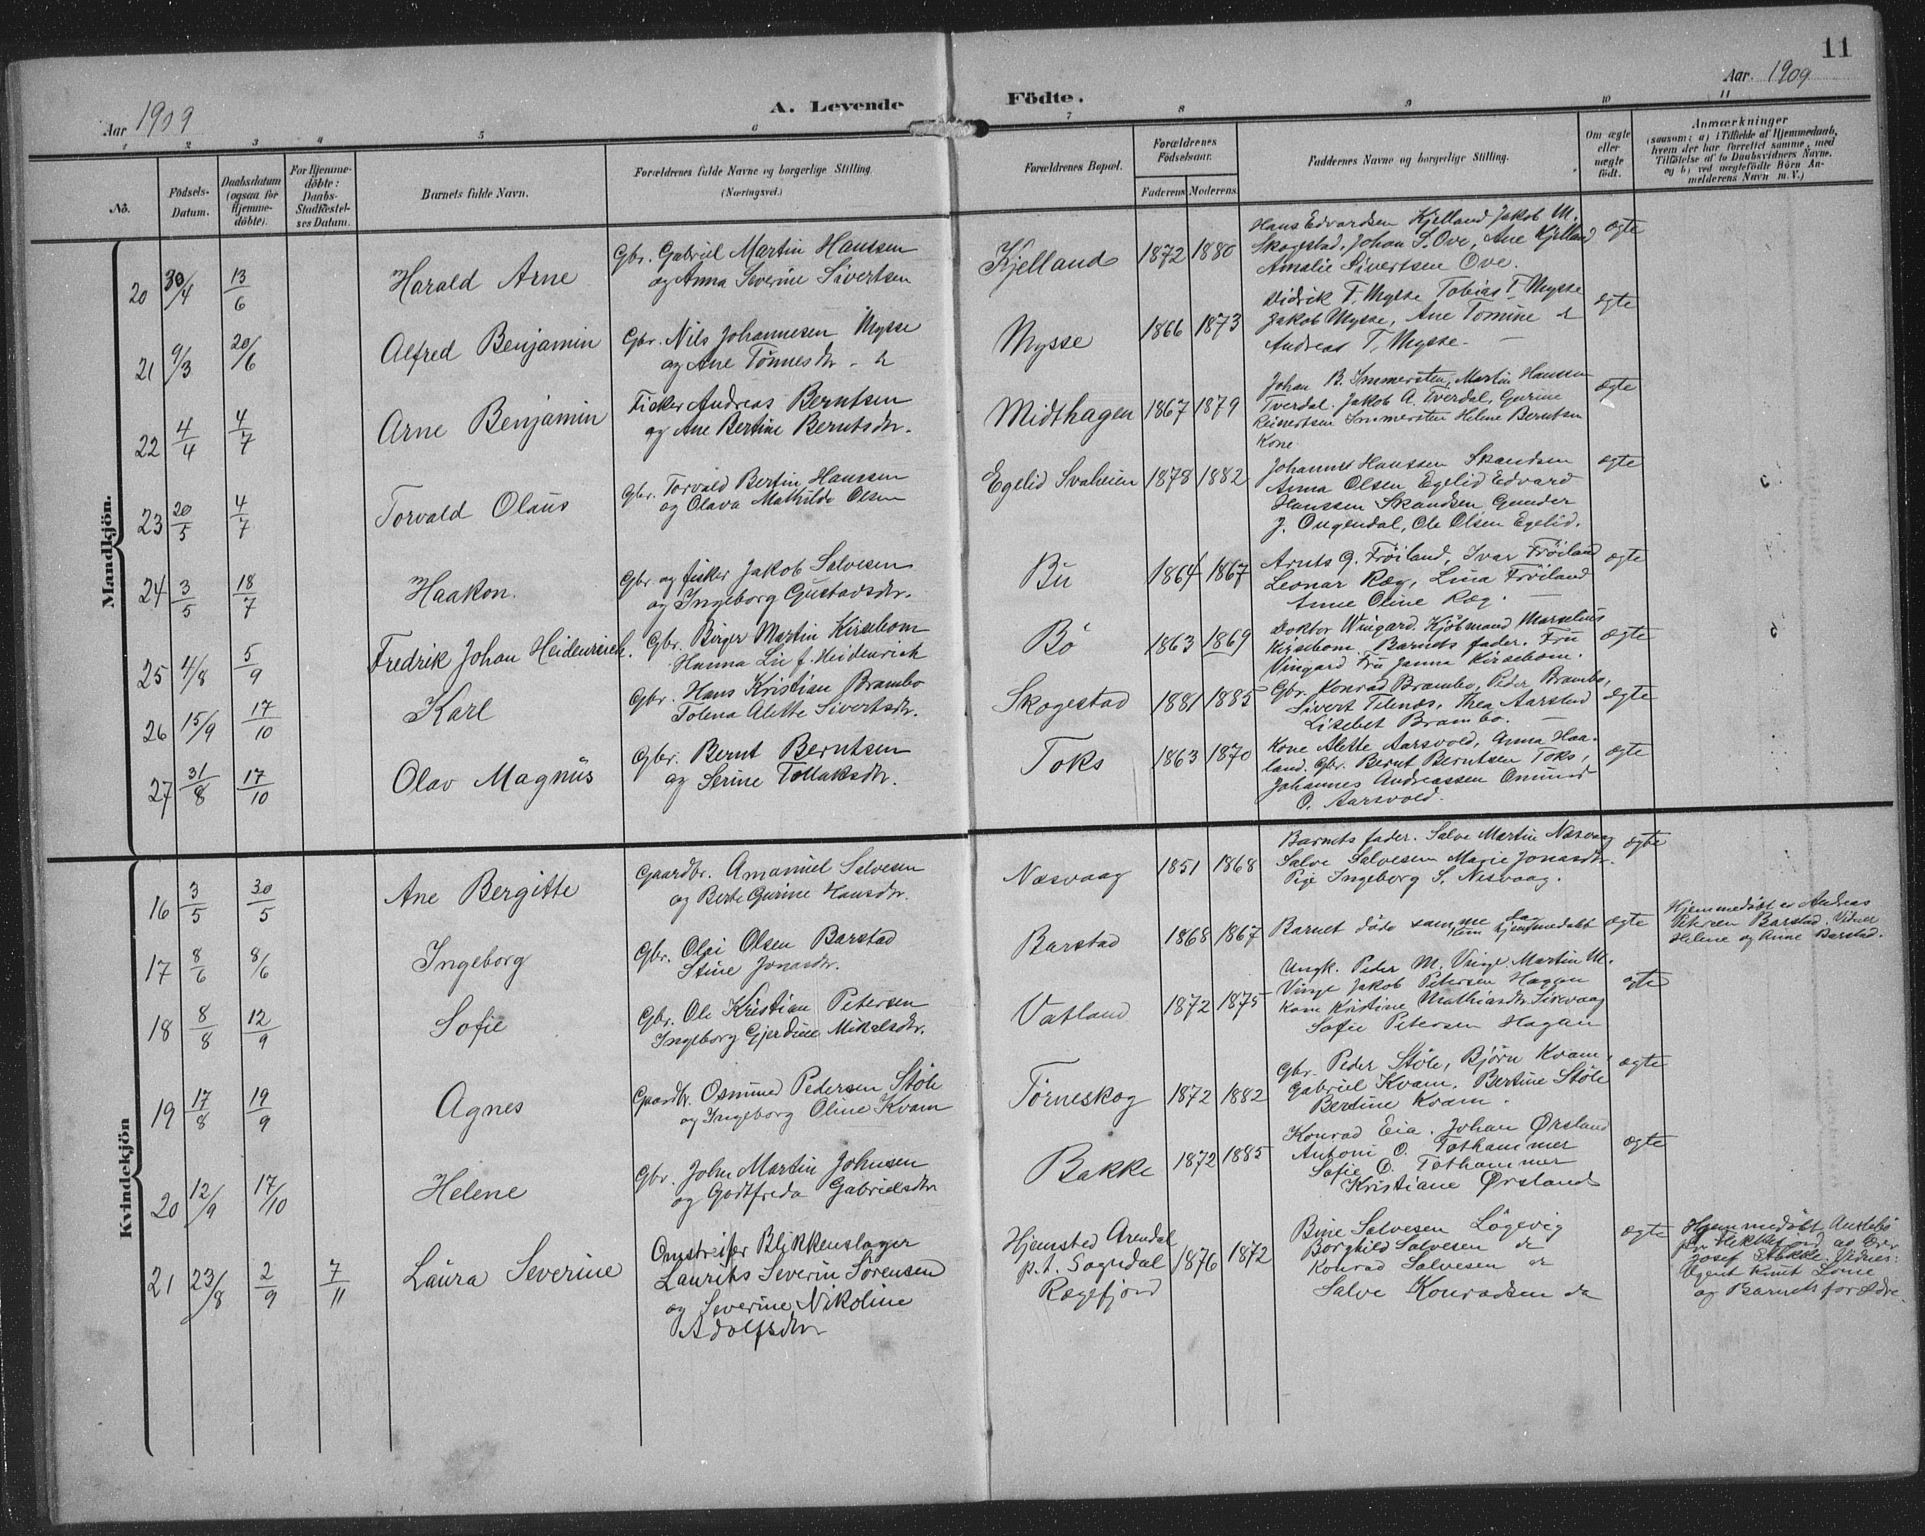 11
Aar 1909
A. Levende Fødte.
Aar. 1909
1 2 3 4 5 6 7 8 9 10 11
No.
Fødsels-Datum.
Daabsdatum (ogsaa for Hjemme-døbte).
For Hjemme-døbte: Daabs-Stadfæstel-ses Datum.
Barnets fulde Navn.
Forældrenes fulde Navne og borgerlige Stilling. (Næringsvei.)
Forældrenes Bopæl.
Forældrenes Fødselsaar.
Faderens. Moderens.
Faddernes Navne og borgerlige Stilling.
Om ægte eller uægte født.
Anmærkninger
(saasom: a) i Tilfælde af Hjemmedaab,
hvem der har forrettet samme, med
Tilføielse af to Daabsvidners Navne,
og b) ved uægtefødte Børn An-
melderens Navn m. V.)
Mandkjøn.
20 30/4 13/6 Harald Arne
Gbr. Gabriel Martin Hanssen
og Anna Severine Sivertsen
Kjelland 1872 1880
Hans Edvardsen Kjelland Jakob M.
Skogestad, Johan S. Ove, Ane Kjelland
Amalie Sivertsen Ove.
ægte
21 9/3 20/6 Alfred Benjamin
Gbr. Nils Johannesen Mysse
og Ane Tønnesdtr.
Mysse 1866 1873
Didrik T. Mysse Tobias T. Mysse
Jakob Mysse, Ane Tomine
Andreas T. Mysse.
ægte
22 4/4 4/7 Arne Benjamin
Fisker Andreas Berntsen
og Ane Bertine Berntsdtr.
Midthagen 1867 1879
Johan B. Immersten, Martin Hanssen
Tverdal. Jakob A. Tverdal, Gurine
Reinertsen Immersten Helene Berntsen
Kone
ægte
23 20/5 4/7 Torvald Olaus
Gbr. Torvald Bertin Hanssen
og Olava Mathilde Olsen
Egelid Svaheien 1878 1882
Johannes Hanssen Skandsen
Anna Olsen Egelid Edvard
Hanssen Skandsen Gunder
J. Ougendal, Ole Olsen Egelid.
ægte
24 3/5 18/7 Haakon.
Gbr. og fisker Jakob Salvesen
og Ingeborg Gustadsdtr.
Bu 1864 1867
G. Frøiland, Ivar Frøiland
Leonar Ræg, Lina Frøiland
Anne Oline Ræg.
ægte
25 4/8 5/9 Fredrik Johan Heidenreich.
Gbr. Birger Martin Kirsebom
Hanna Lie f. Heidenrich
Bø 1863 1869
Doktor Wingard. Kjøbmand Marselius
Kirsebom. Barnets fader. Fru
Vingard Fru Janna Kirsebom.
ægte
26 15/9 17/10 Karl
Gbr. Hans Kristian Brambo
Tolena Alette Sivertsdtr.
Skogestad 1881 1885
Gbr. Konrad Brambo, Peder Brambo,
Sivert Titnæs, Thea Aarstad
Lisebet Brambo.
ægte
27 31/8 17/10 Olav Magnus
Gbr. Bernt Berntsen
og Serine Tollaksdtr.
Toks 1863 1870
Kone Alette Aarsvold, Anna Haa-
land. Gbr. Bernt Berntsen Toks,
Johannes Andreassen Omund
O. Aarsvold.
ægte
Kvindekjøn
16 3/5 30/5 Ane Bergitte
Gaardbr. Amanuel Salvesen
og Berte Gurine Hansdtr.
Nesvaag 1851 1868
Barnets fader. Salve Martin Nesvaag
Salve Salvesen Marie Jonasdtr.
Pige Ingeborg S. Nesvaag.
ægte
17 8/6 8/6 Ingeborg
Gbr. Olai Olsen Barstad
Stine Jonasdtr.
Barstad 1868 1867
Barnet døde samme dag hjemmedøbt
ægte
Hjemmedøbt av Andreas
Petersen Barstad. Vidner
Helene og Anne Barstad.
18 8/8 12/9 Sofie
Gbr. Ole Kristian Petersen
Ingeborg Gjerdine Mikalsdtr.
Vatland 1872 1875
Ungk. Peder M. Vinge. Martin M.
Vinge Jakob Petersen Hagan
Kone Kristine Mathiasdtr. Sirevaag
Sofie Petersen Hagan
ægte
19 17/8 19/9 Agnes
Gaardbr. Osmund Pedersen Støle
og Ingeborg Oline Kvam
Torneskog 1872 1882
Gbr. Peder Støle, Bjørn Kvam,
Gabriel Kvam, Bertine Støle
Bertine Kvam.
ægte
20 12/9 17/10 Helene
Gbr. John Martin Johnsen
og Godtfreda Gabrielsdtr
Bakke 1872 1885
Konrad Eia. Johan Ørsland
Antoni O. Tothammer
Sofie O. Tothammer
Kristiane Ørsland
ægte
21 23/8 2/9 7/11 Laura Severine
Omstreifer Blikkenslager
Laurits Severin Sørensen
og Severine Nikoline
Adolfsdtr
Hjemsted Arendal
p.t. Sogndal
Rægefjord
1876 1872
Bine Salvesen Løgevig
Borghild Salvesen do
Konrad Salvesen do
Salve Konradsen do
ægte
Hjemmedøbt
Josef Vidner:
Agent Knut Lome
og Barnets forældre.